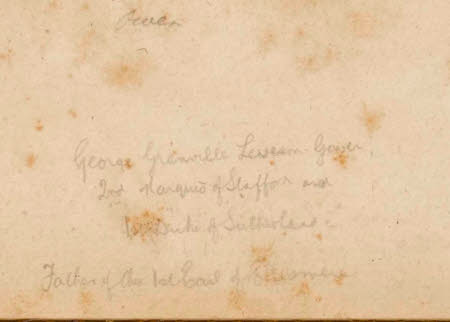 Owen
George Granville Leveson-Gower
2nd Marquis of Stafford and
1st Duke of Sutherland
Father of the 1st Earl of Ellesmere